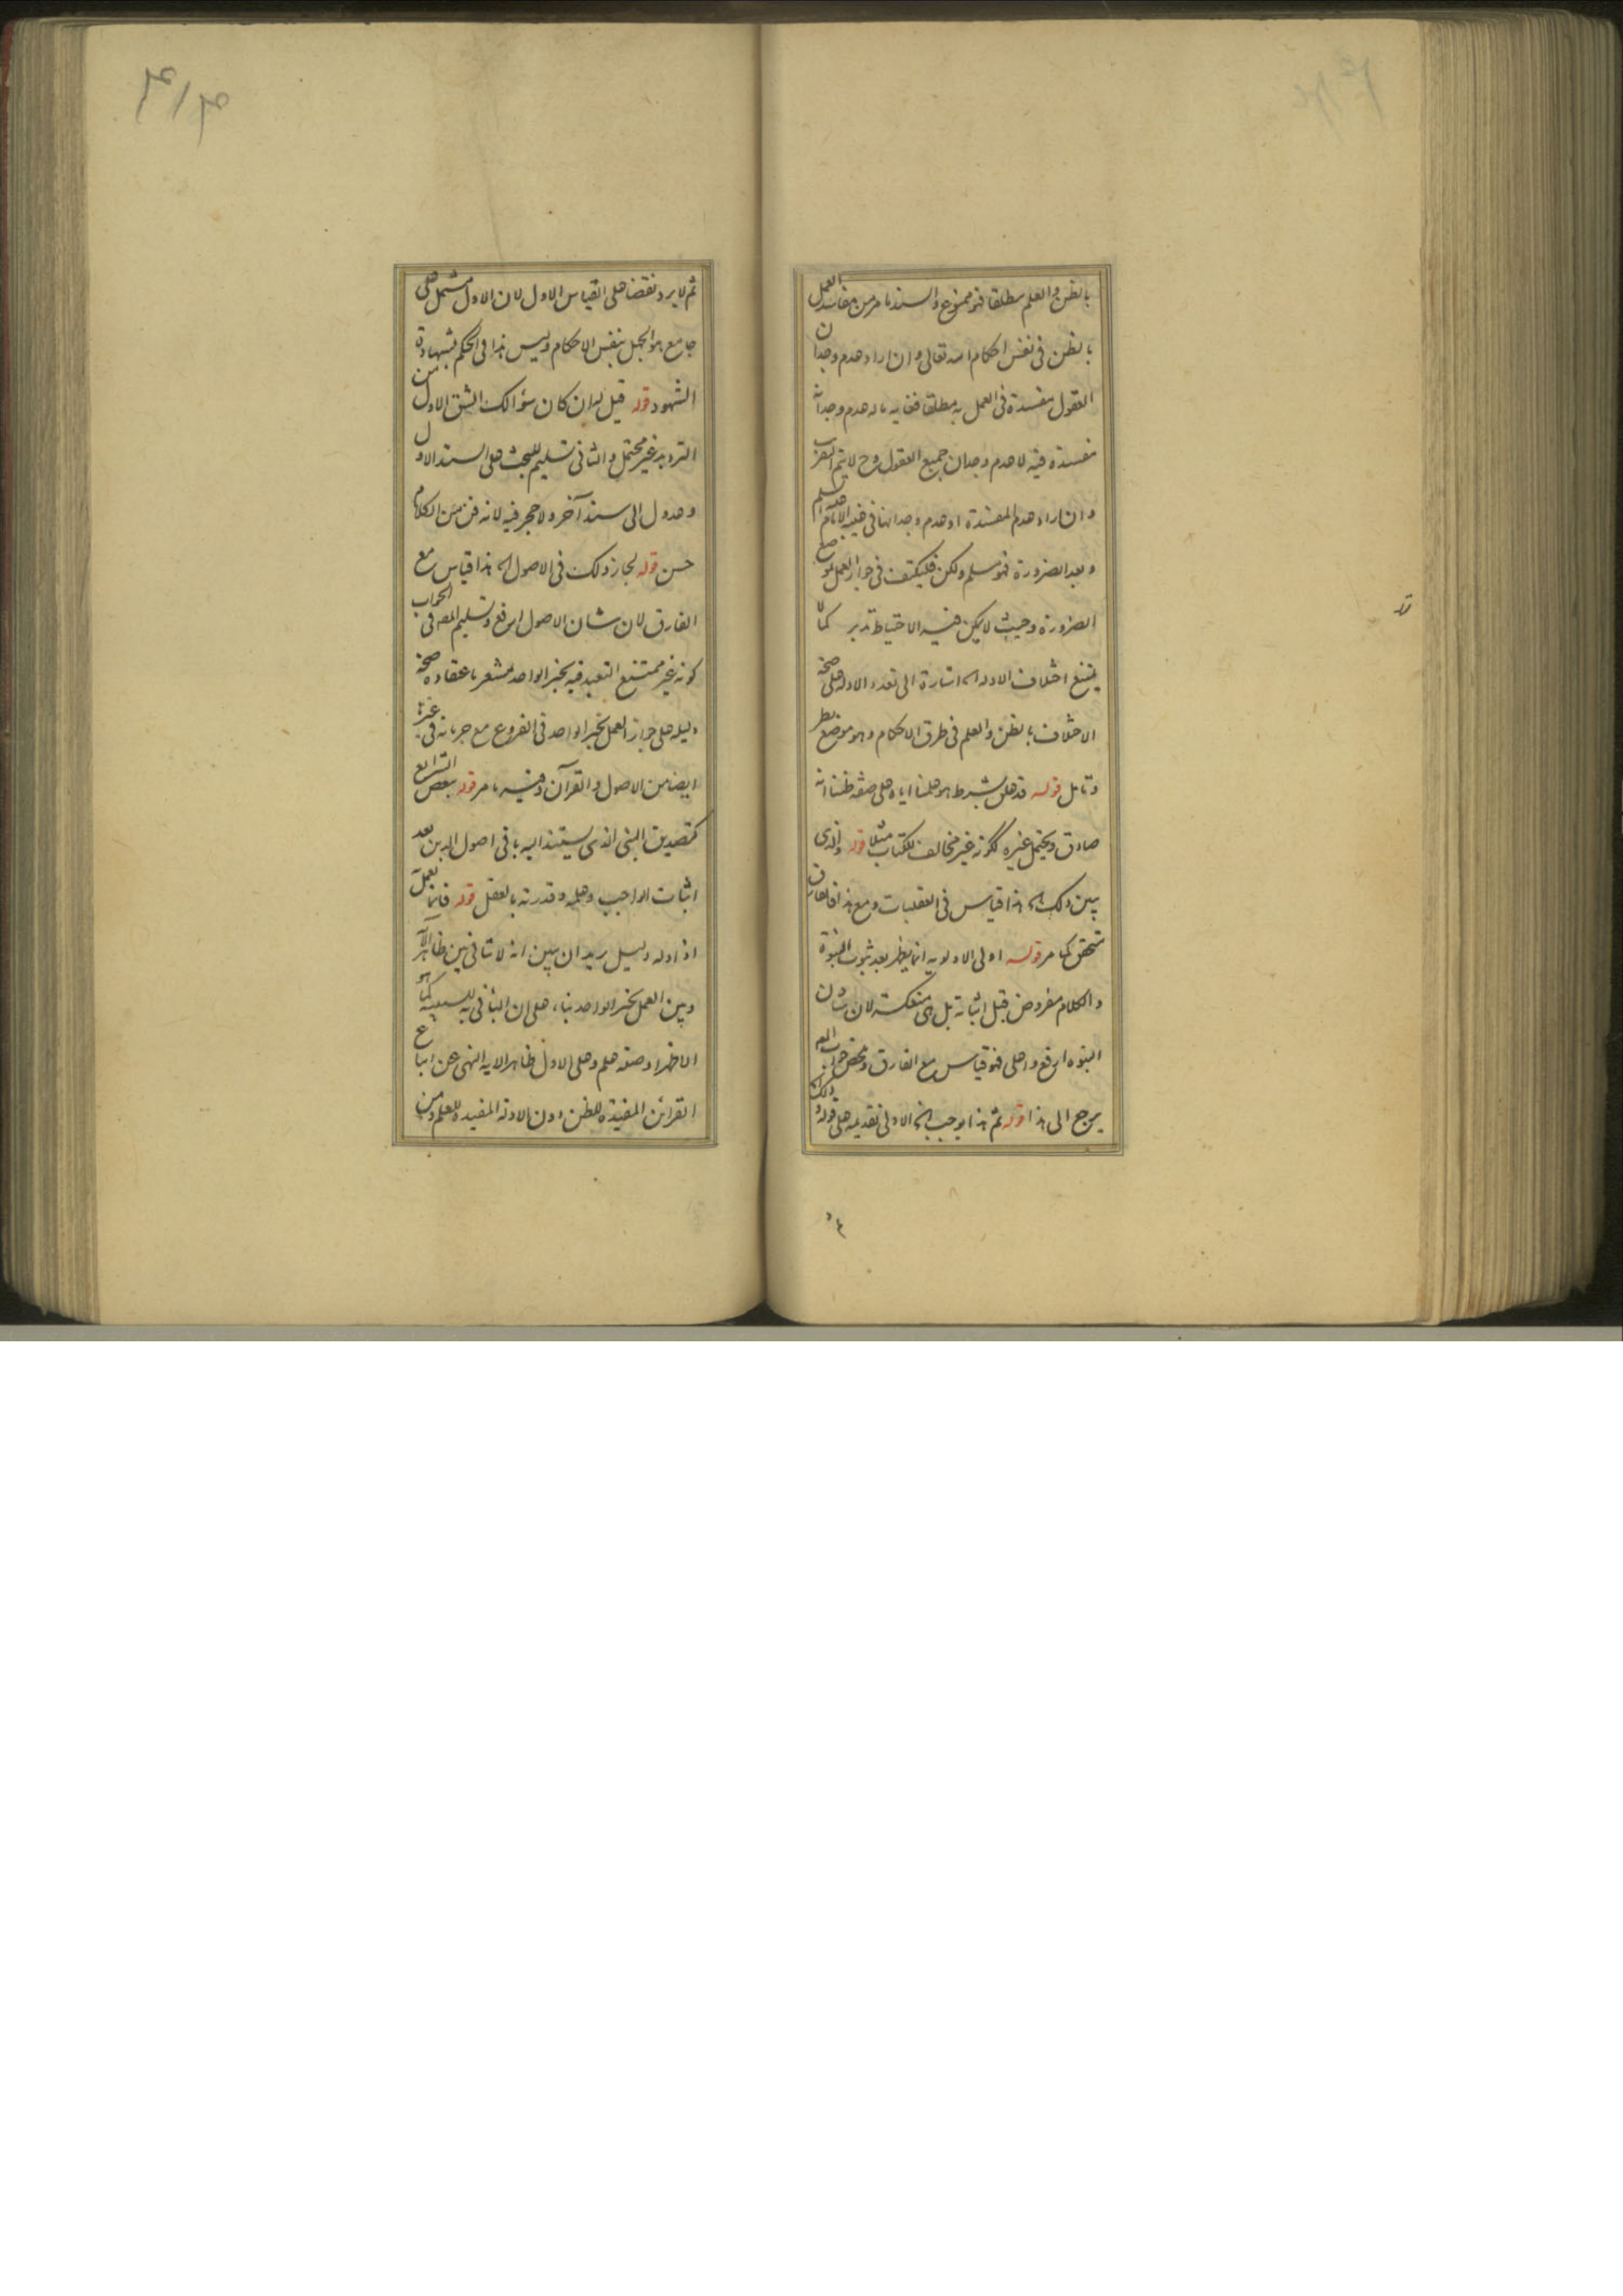 بالظن والعلم مطلقا فهو ممنوع والسند ما مر من مفاسد العمل
بالظن فى نفس احكام الله تعالى وان اراد عدم وجدان
العقول مفسدة فى العمل به مطلقا ففايه ماله عدم وجدانه
مفسدة فيه لا عدم وجدان جميع العقول وح لا يتم التقريب
وان اراد عدم المفسدة او عدم وجدانها فى غيبة الامام
وبعد الضرورة فهو مسلم ولكن فليكتف فى جواز العمل بموضع
الضرورة وحيث لا يمكن فيه الاحتياط تدبر كما لا
يمتنع اختلاف الادلة اه اشارة الى تعدد الادلة على صحة
الاختلاف بالظن والعلم فى طرق الاحكام وهو موضع نظر
وتامل قوله قد علق بشرط هو علمنا اياه على صفة ظننا انه
صادق ويحتمل غيره ككونه غير مخالف للكتاب مثلا قوله والذى
يبين ذلك اه هذا قياس فى العقليات ومع هذا فالفارق
متحقق كما مر قوله اولى الاولويه انما يظهر بعد ثبوت النبوة
والكلام مفروض قبل اثباته بل هى منعكسة لان شان
النبوه ارفع واعلى فهو قياس مع الفارق ومحض جواب المص
يرجع الى هذا قوله ثم هذا يوجب اه الاولى تقديمه على قوله وذلك
ثم لا يرد نقضا على القياس الاول لان الاول مشتمل على
جامع هو الجهل بنفس الاحكام وليس هذا فى الحكم بشهادة
الشهود قوله قيل له ان كان سؤالك الشق الاول من
الترديد غير محتمل والثانى تسليم للبحث على السند الاول
وعدول الى سند آخر ولا حجر فيه لانه فن من الكلام
حسن قوله لجاز ذلك فى الاصول اه هذا قياس مع
الفارق لان شان الاصول ارفع وتسليم المص فى الجواب
كونه غير ممتنع التعبد فيه بخبر الواحد مشعر باعتقاده صحة
دليله على جواز العمل بخبر الواحد فى الفروع مع جريانه فى غيرها
ايضا من الاصول والقرآن وفيه ما مر قوله بعض الشرايع
كتصديق النبى الذى يستند اليه باقى اصول الدين بعد
اثبات الواجب وعلمه وقدرته بالعقل قوله فانما نعمل
اذا دله دليل يريد ان يبين انه لا تنافى بين ظاهر الآية
وبين العمل بخبر الواحد بناء على ان الباء فى به للسببية كما هو
الاظهر او صفه علم وعلى الاول ظاهر الايه النهى عن اتباع
القرائن المفيدة للظن دون الادلة المفيده للعلم ومن